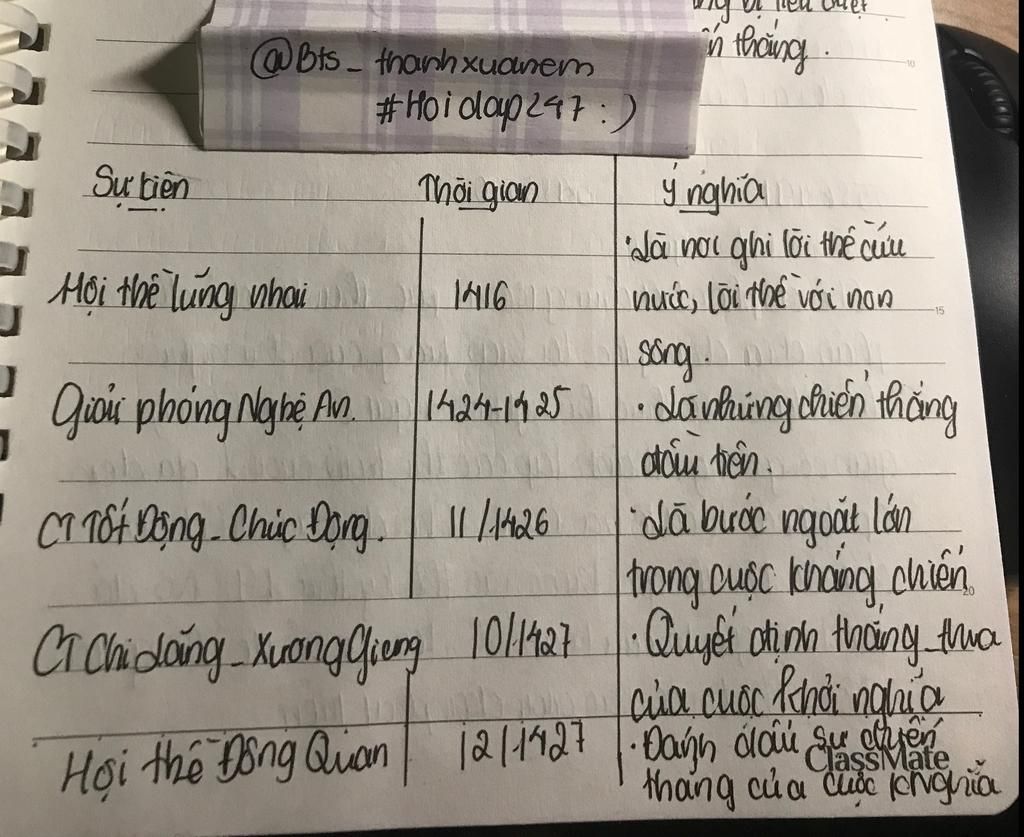 ị tiêu diệt.
thắng.
@Bts_thanhxuanem
#Hoidap247 :)
Sự kiện Thời gian Ý nghĩa
·Là nơi ghi lời thề cứu
Hội thề lũng nhai 1416 nước, lời thề với non
sông.
Giải phóng Nghệ An. 1424-1425 · Là những chiến thắng
đầu tiên.
CT Tốt Động - Chúc Động. 11/1426 ·Là bước ngoặt lớn
trong cuộc kháng chiến
CT Chi Lăng - Xương Giang 10/1427 · Quyết định thắng thua
của cuộc khởi nghĩa
Hội thề Đông Quan 12/1427 ·Đánh dấu sự chiến
ClassMate
thắng của cuộc knghĩa
10
15
20